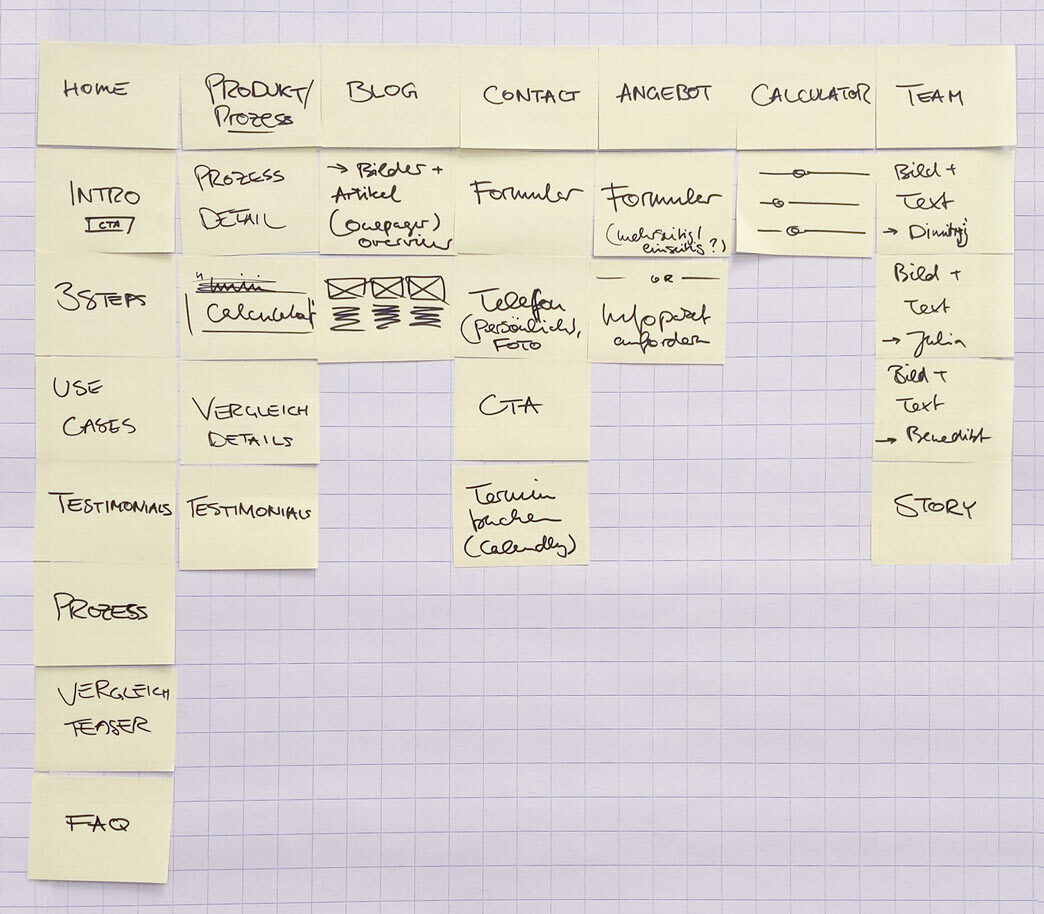 HOME
PRODUKT/
Prozess
BLOG
CONTACT
ANGEBOT
CALCULATOR
TEAM
INTRO
CTA
PROZESS
DETAIL
→ Bilder +
Artikel
(onepager)
overview
Formular
Formular
(mehrseitig/
einseitig?)
Bild +
Text
→ Dimitrij
3 STEPS
Calculator
Telefon
(persönlich,
FOTO
OR
Infopaket
anfordern
Bild +
Text
→ Julia
USE
CASES
VERGLEICH
DETAILS
CTA
Bild +
Text
→ Benedikt
TESTIMONIALS
TESTIMONIALS
Termin
buchen
(Calendly)
STORY
PROZESS
VERGLEICH
TEASER
FAQ